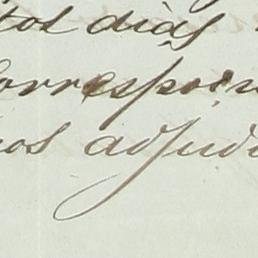 tos días
correspon
os adjudi